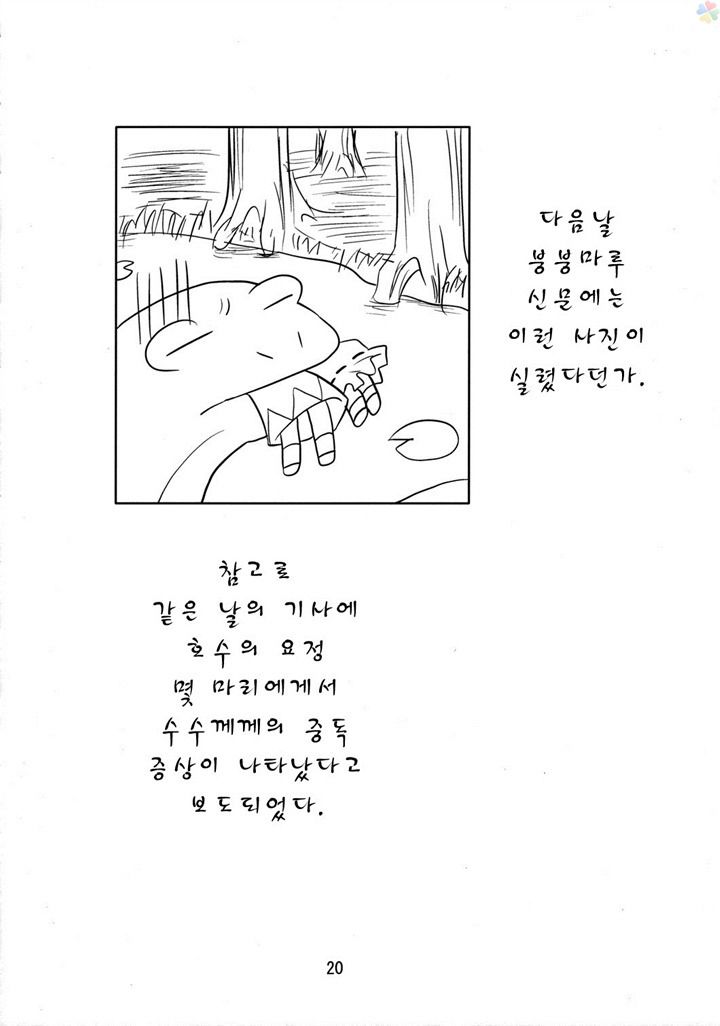 다음날
붕붕마루
신문에는
이런 사진이
실렸다던가.
참고로
같은 날의 기사에
호수의 요정
몇 마리에게서
수수께께의 중독
증상이 나타났다고
보도되었다.
20